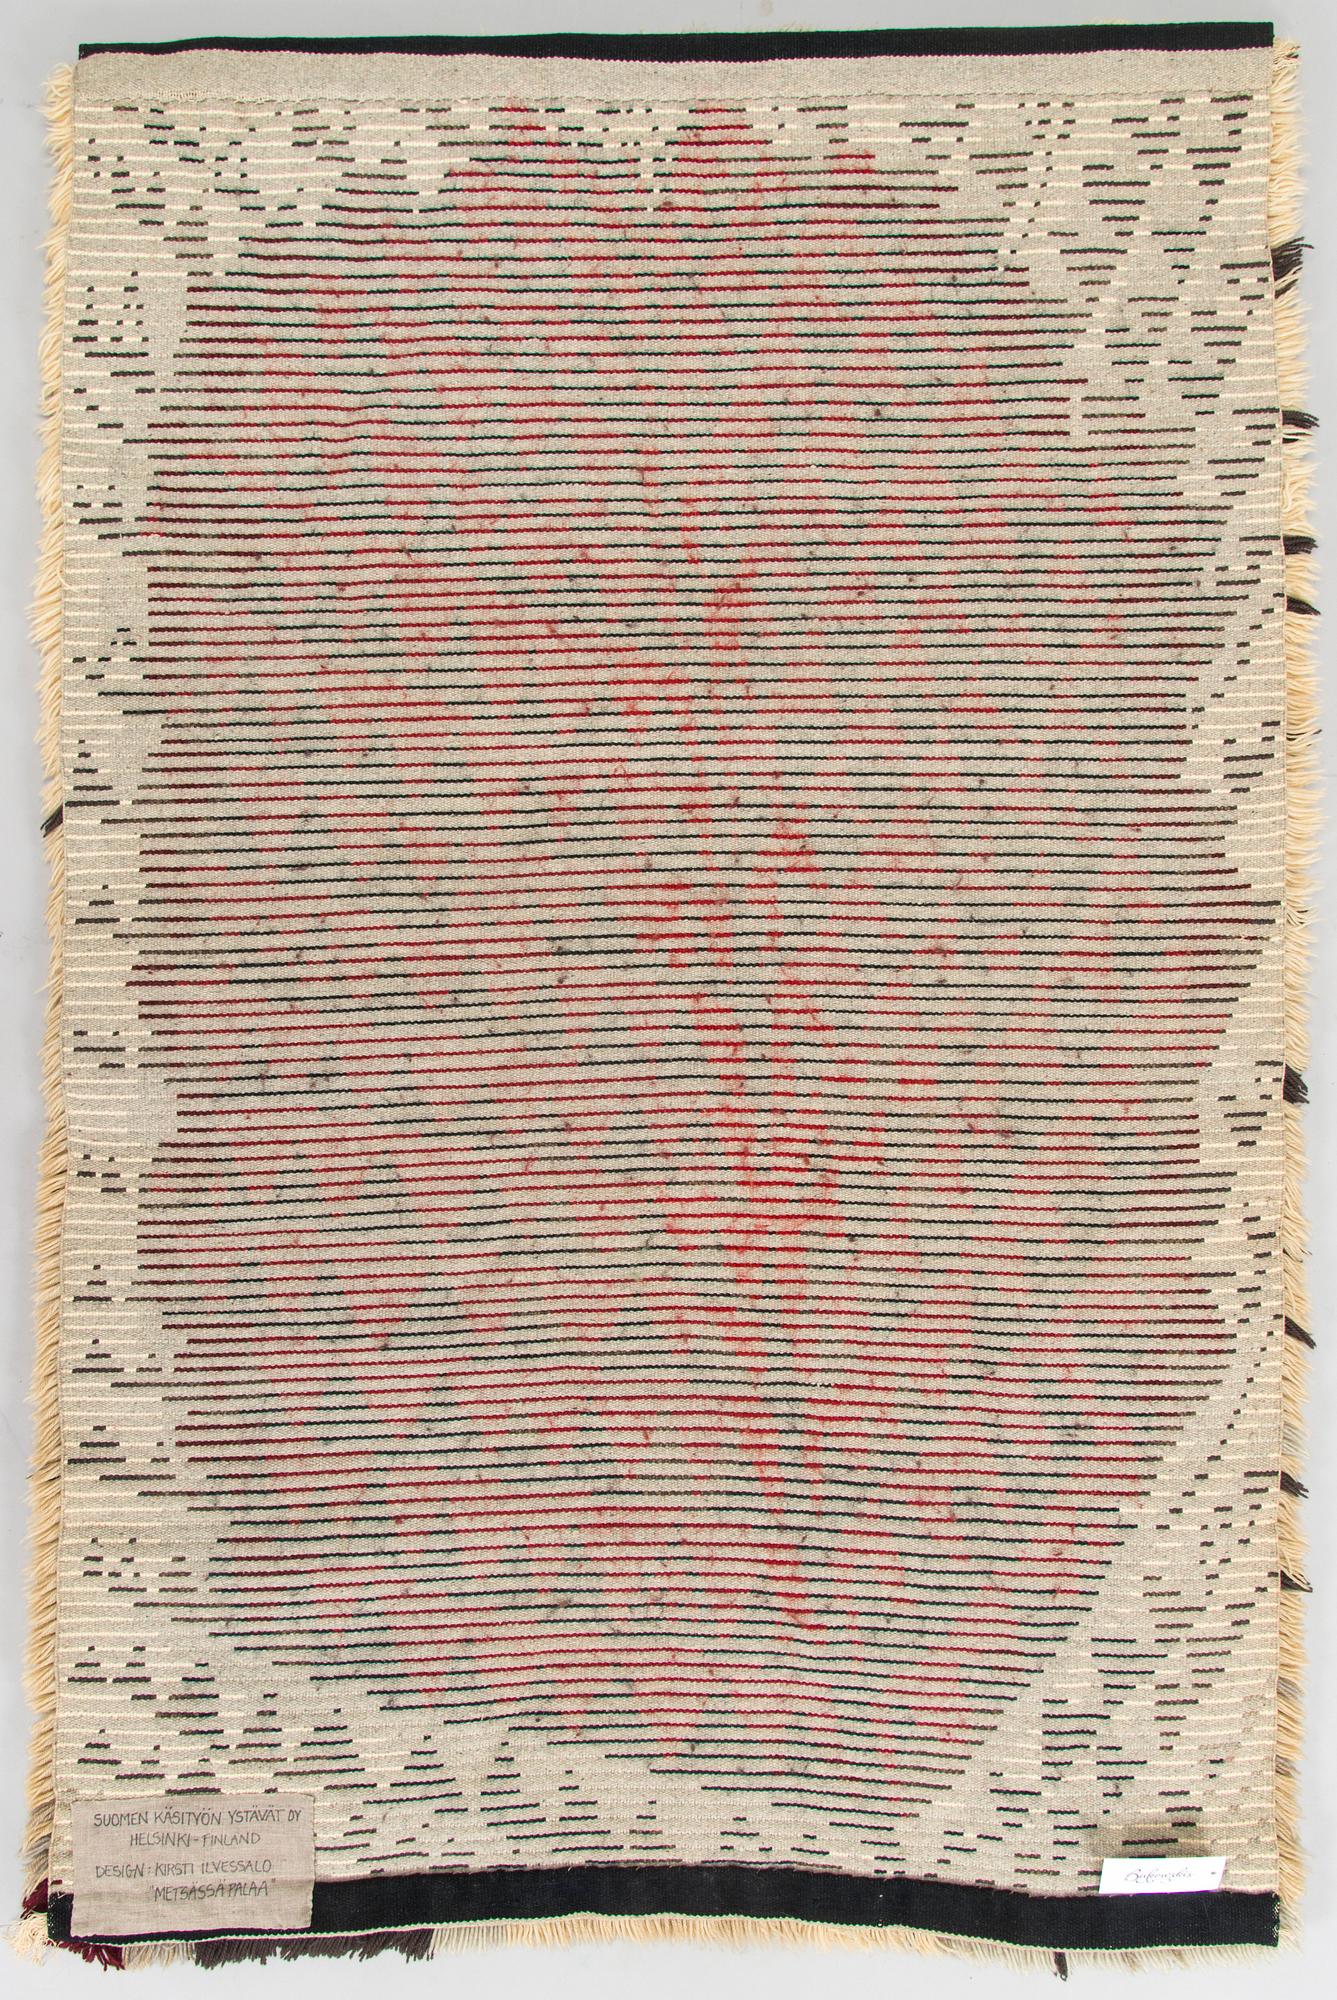 SUOMEN KÄSITYÖN YSTÄVÄT OY
HELSINKI - FINLAND
DESIGN: KIRSTI ILVESSALO
"METSÄSSÄ PALAA"
Bukowskis